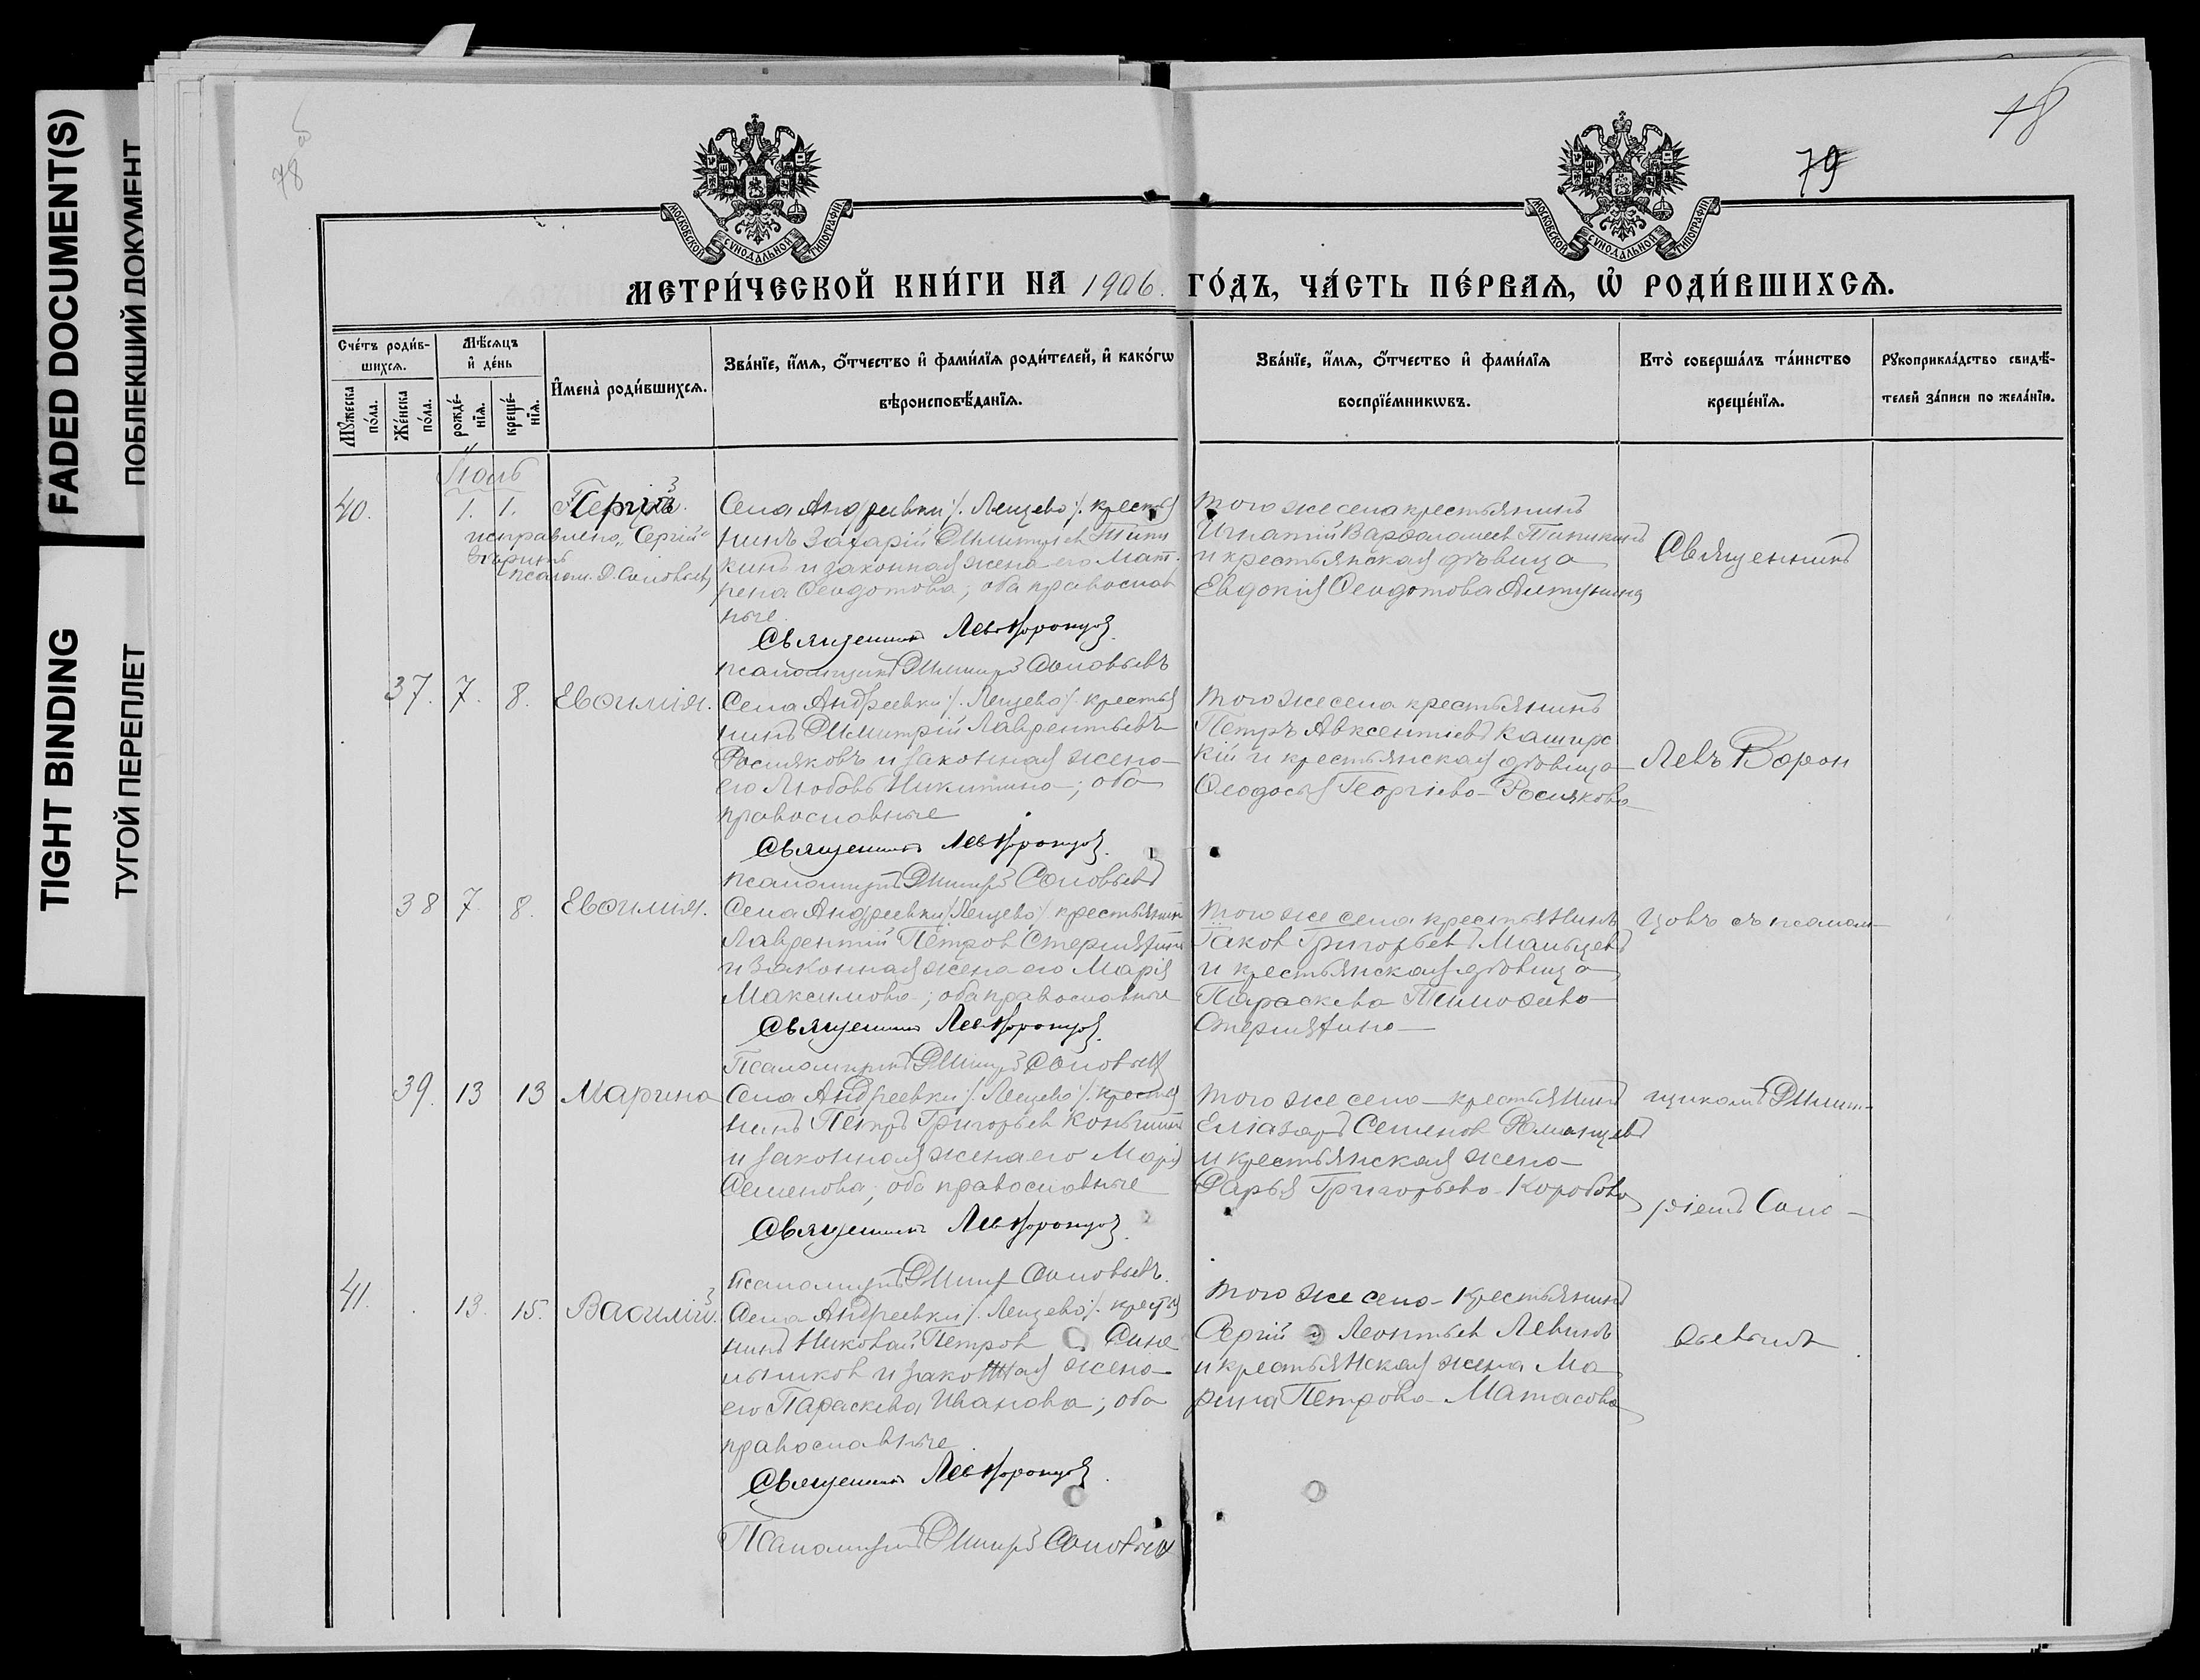 FADED DOCUMENT(S)
ПОБЛЕКШИЙ ДОКУМЕНТ
TIGHT BINDING
ТУГОЙ ПЕРЕПЛЕТ
78 об
18
79
МОСКОВСКОЙ СѴНОДАЛЬНОЙ ТИПОГРАФІИ
МОСКОВСКОЙ СѴНОДАЛЬНОЙ ТИПОГРАФІИ
МЕТРИ́ЧЕСКОЙ КНИ́ГИ НА 1906. ГО́ДЪ, ЧА́СТЬ ПЕ́РВАѦ, Ѡ҆ РОДИ́ВШИХСѦ.
Сче́тъ роди́в-
шихсѧ.
Мꙋ́жеска по́ла.
Же́нска по́ла.
Мѣ́сѧцъ
и҆ де́нь
рожде́-
нїѧ.
креще́-
нїѧ.
И҆мена̀ роди́вшихсѧ.
Зва́нїе, и҆́мѧ, ѻ҆́тчество и҆ фами́лїѧ роди́телей, и҆ како́гѡ
вѣроисповѣ́данїѧ.
Зва́нїе, и҆́мѧ, ѻ҆́тчество и҆ фами́лїѧ
воспрїе́мникѡвъ.
Кто̀ соверша́лъ та́инство
креще́нїѧ.
Рꙋкоприкла́дство свидѣ́-
телей за́писи по жела́нїю.
Іюль
40.
1. 1.
Сергій.
исправлено „Сергій"
псалом. Д. Соловьевъ
Села Андреевки /. Лещево /. крестья
нинъ Захарій Димитріев Типи
кинъ и законная жена его Мат
рена Ѳеодотова; оба православ
ные.
Священникъ Левъ Воронцовъ.
псаломщикъ Димитрій Соловьевъ
того же села крестьянинъ
Игнатій Варѳоломеев Типикинъ
и крестьянская дѣвица
Евдокія Ѳеодотова Алтунина
Священникъ
37. 7. 8. Евѳимія.
Села Андреевки /. Лещево /. крестья
нинъ Димитрій Лаврентьевъ
Росляковъ и законная жена
его Любовь Никитина; оба
православные
Священникъ Левъ Воронцовъ.
псаломщикъ Димитрій Соловьевъ
того же села крестьянинъ
Петръ Авксентіевъ Каширс
кій и крестьянская дѣвица
Ѳеодосья Георгіева Рослякова
Левъ Ворон
38 7 8. Евѳимія.
Села Андреевки /. Лещево /. крестьянинъ
Лаврентій Петров Стерлягинъ
и законная жена его Марія
Максимова; оба православные
Священникъ Левъ Воронцовъ.
Псаломщикъ Димитрій Соловьевъ
того же села крестьянинъ
Іаков Григорьев Мальцевъ
и крестьянская дѣвица
Параскева Тимоѳеева
Стерлягина
цовъ съ псалом-
39. 13 13 Марина
Села Андреевки /. Лещево /. крестья
нинъ Петръ Григорьев Коньшинъ
и законная жена его Марія
Семенова; оба православные
Священникъ Левъ Воронцовъ.
Псаломщикъ Димитрій Соловьевъ.
того же села крестьянинъ
Елеазаръ Семенов Румянцевъ
и крестьянская жена
Дарья Григорьева Коробова
щикомъ Димит-
ріемъ Соло-
41. 13. 15. Василій.
Села Андреевки /. Лещево /. крестья
нинъ Николай Петров Сине
льников и законная жена
его Параскева Иванова; оба
православные
Священникъ Левъ Воронцовъ.
Псаломщикъ Димитрій Соловьевъ
того же села крестьянинъ
Сергій Леонтьев Левинъ
и крестьянская жена Ма
рина Петрова Матасова
вьевымъ